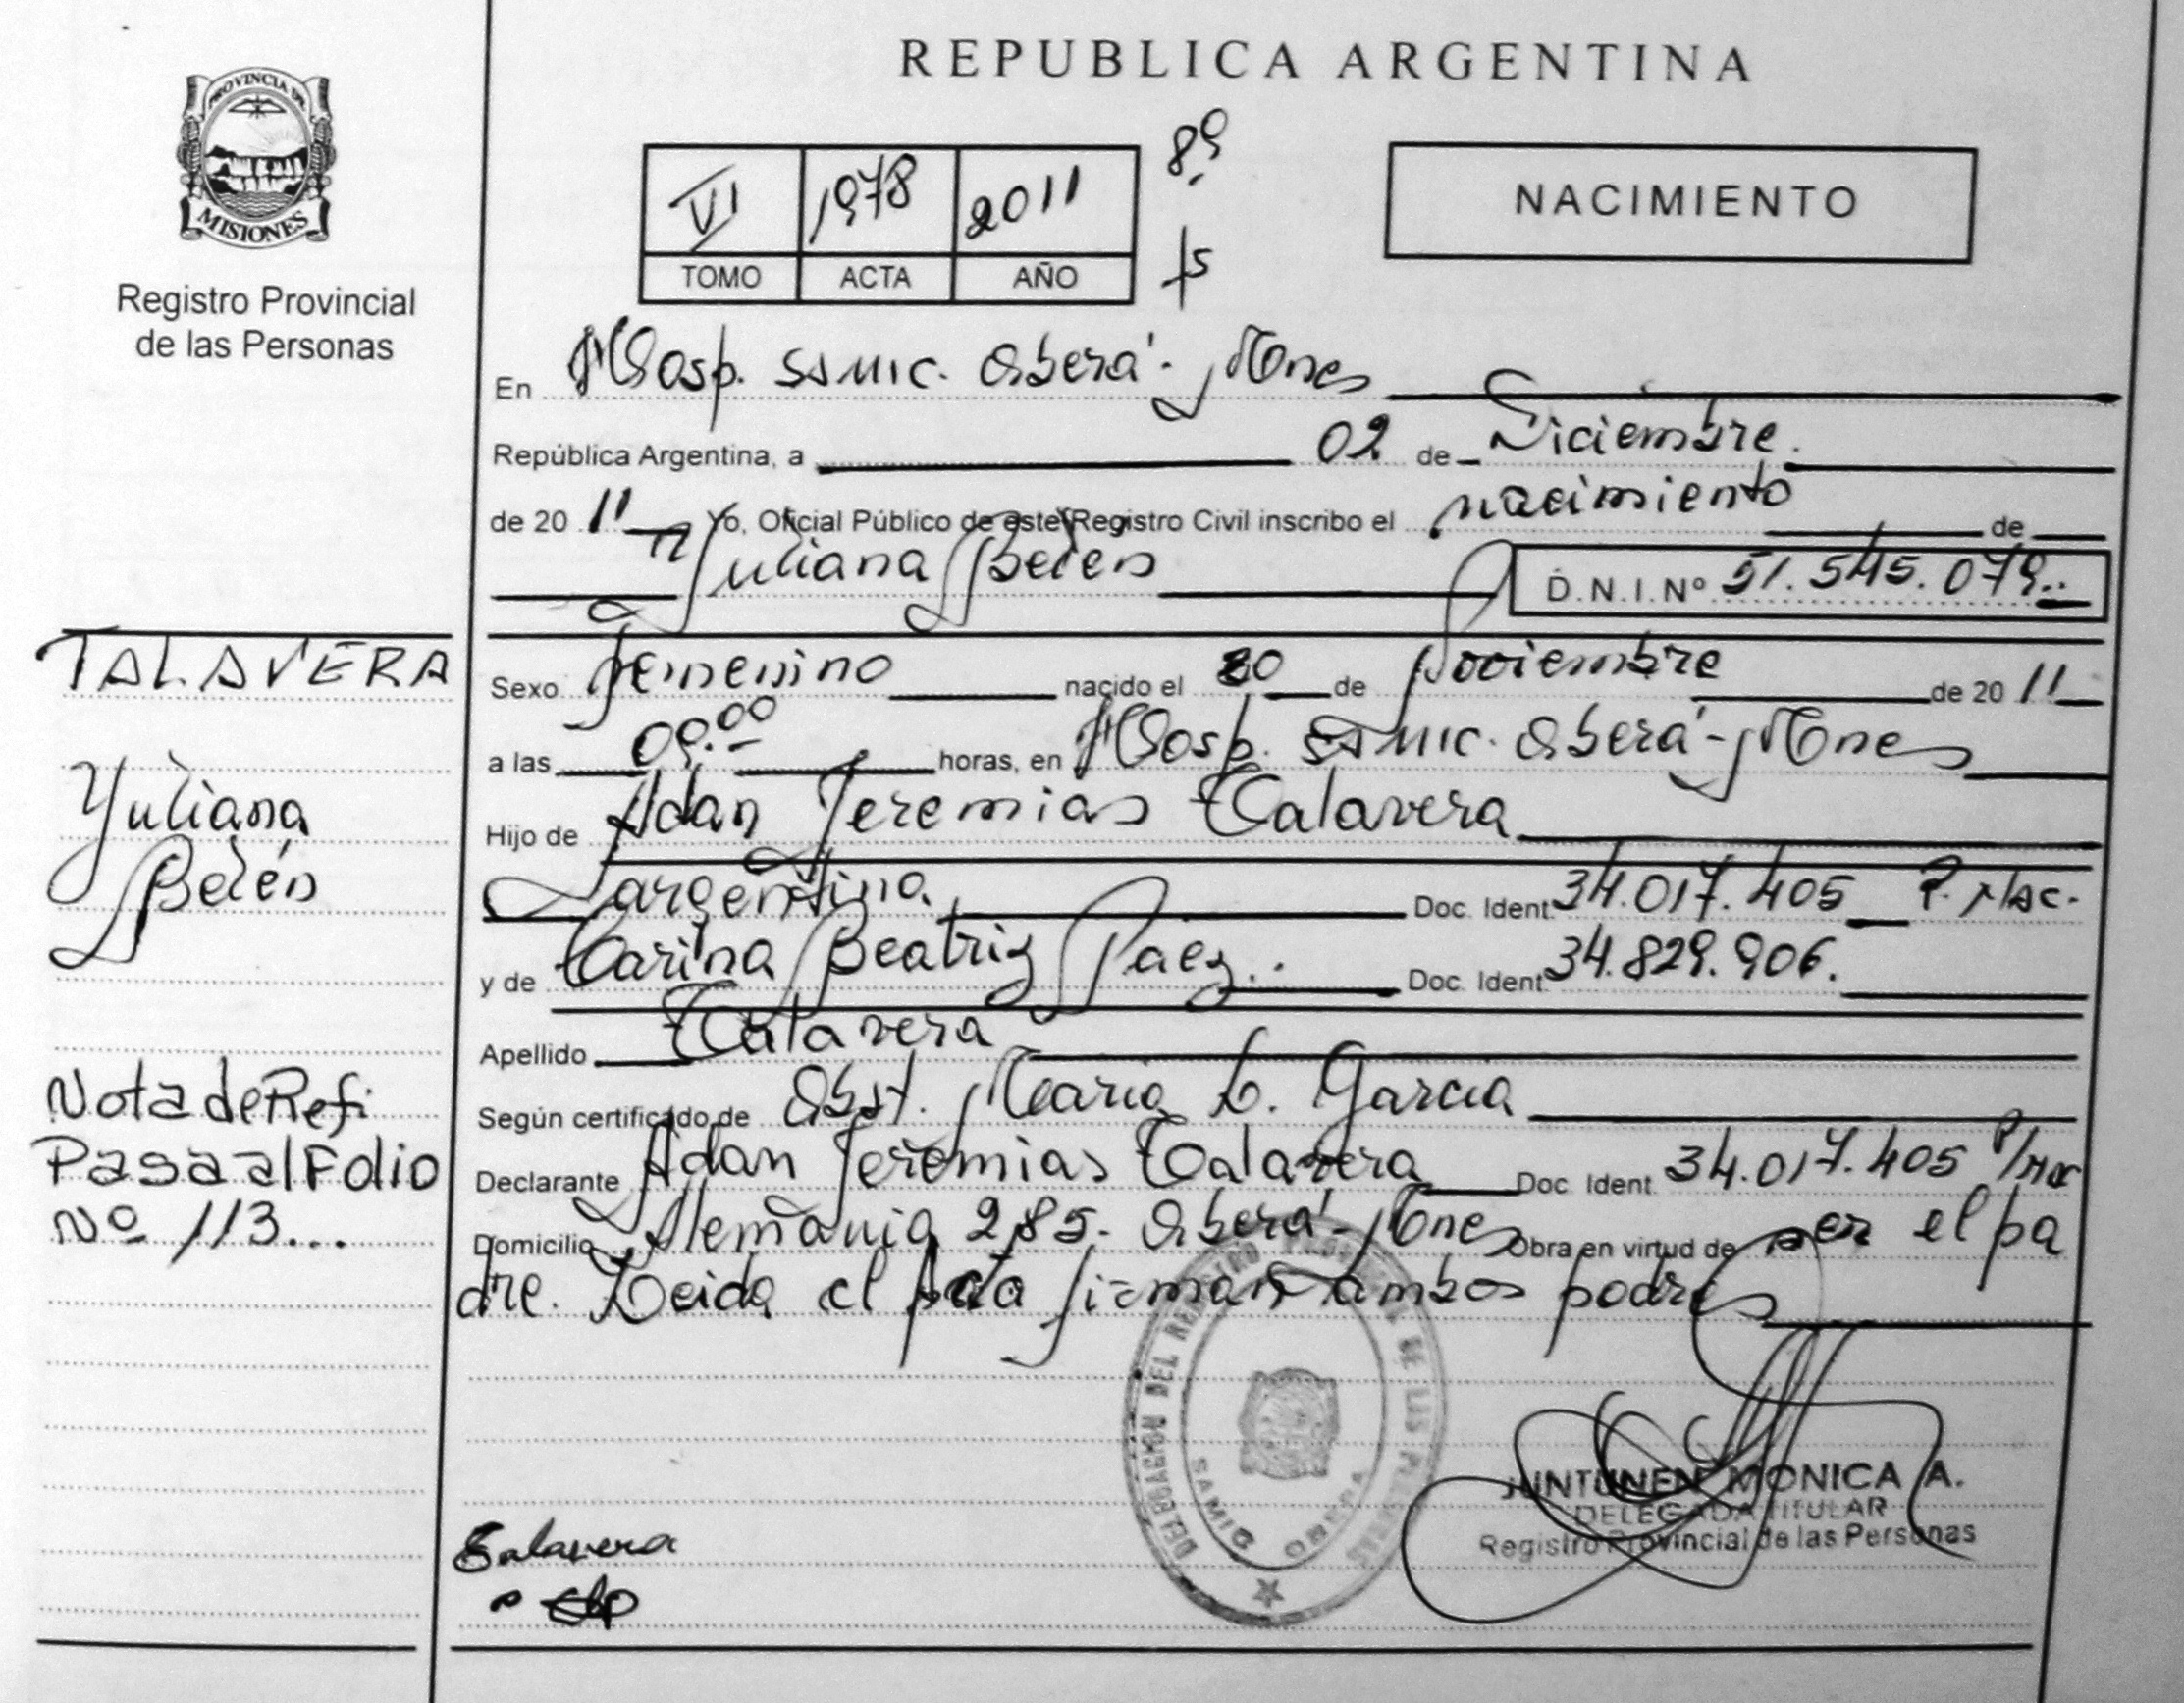 REPUBLICA ARGENTINA
PROVINCIA DE
MISIONES
Registro Provincial
de las Personas
VI 1978 2011
TOMO ACTA AÑO
NACIMIENTO
En Hosp. SSMIC. Oberá - Mnes
República Argentina, a 02 de Diciembre.
de 20 11 Yo, Oficial Público de este Registro Civil inscribo el nacimiento de
Yuliana Belén
D.N.I.Nº 51.545.079..
TALAVERA
Yuliana
Belén
Nota de Ref:
Pasa al Folio
Nº 113...
Sexo femenino nacido el 20 de Noviembre de 20 11
a las 09.00 horas, en Hosp. SSMIC. Oberá - Mnes
Hijo de Adan Jeremias Talavera
argentino. Doc. Ident 34.017.405
y de Carina Beatriz Paez.. Doc. Ident 34.829.906.
Apellido Talavera
Según certificado de Obst. Maria L. Garcia
Declarante Adan Jeremias Talavera Doc Ident 34.017.405
Domicilio Alemania 285 - Oberá - Mnes Obra en virtud de ser el pa
dre. Leida el Acta firman ambos padres
DELEGACION DEL REGISTRO PROVINCIAL DE LAS PERSONAS
OBERA
JUNTUNEN MONICA A.
DELEGADA TITULAR
Registro Provincial de las Personas
Talavera